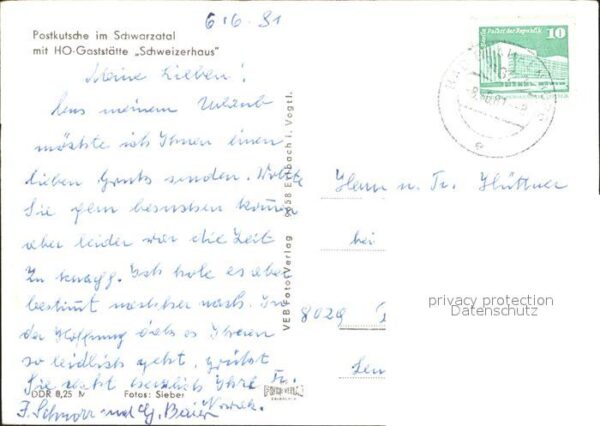 6.6.81
Postkutsche im Schwarzatal
mit HO-Gaststätte „Schweizerhaus"
Meine Lieben!
Aus meinem Urlaub
möchte ich Ihnen einen
lieben Gruß senden. Wollte
Sie gern besuchen kommen
aber leider war die Zeit
zu knapp. Ich hole es aber
bestimmt nachher nach. In
der Hoffnung daß es Ihnen
so leidlich geht, grüßt
Sie recht herzlich Ihre Fr.
Nowak.
J. Schnorr und G. Baier
DDR 0,25 M Fotos: Sieber
VEB Foto-Verlag 9358 Erlbach i. Vogtl.
Palast der Republik
10
Herrn u. Fr. Hüttner
bei
8029
privacy protection
Datenschutz